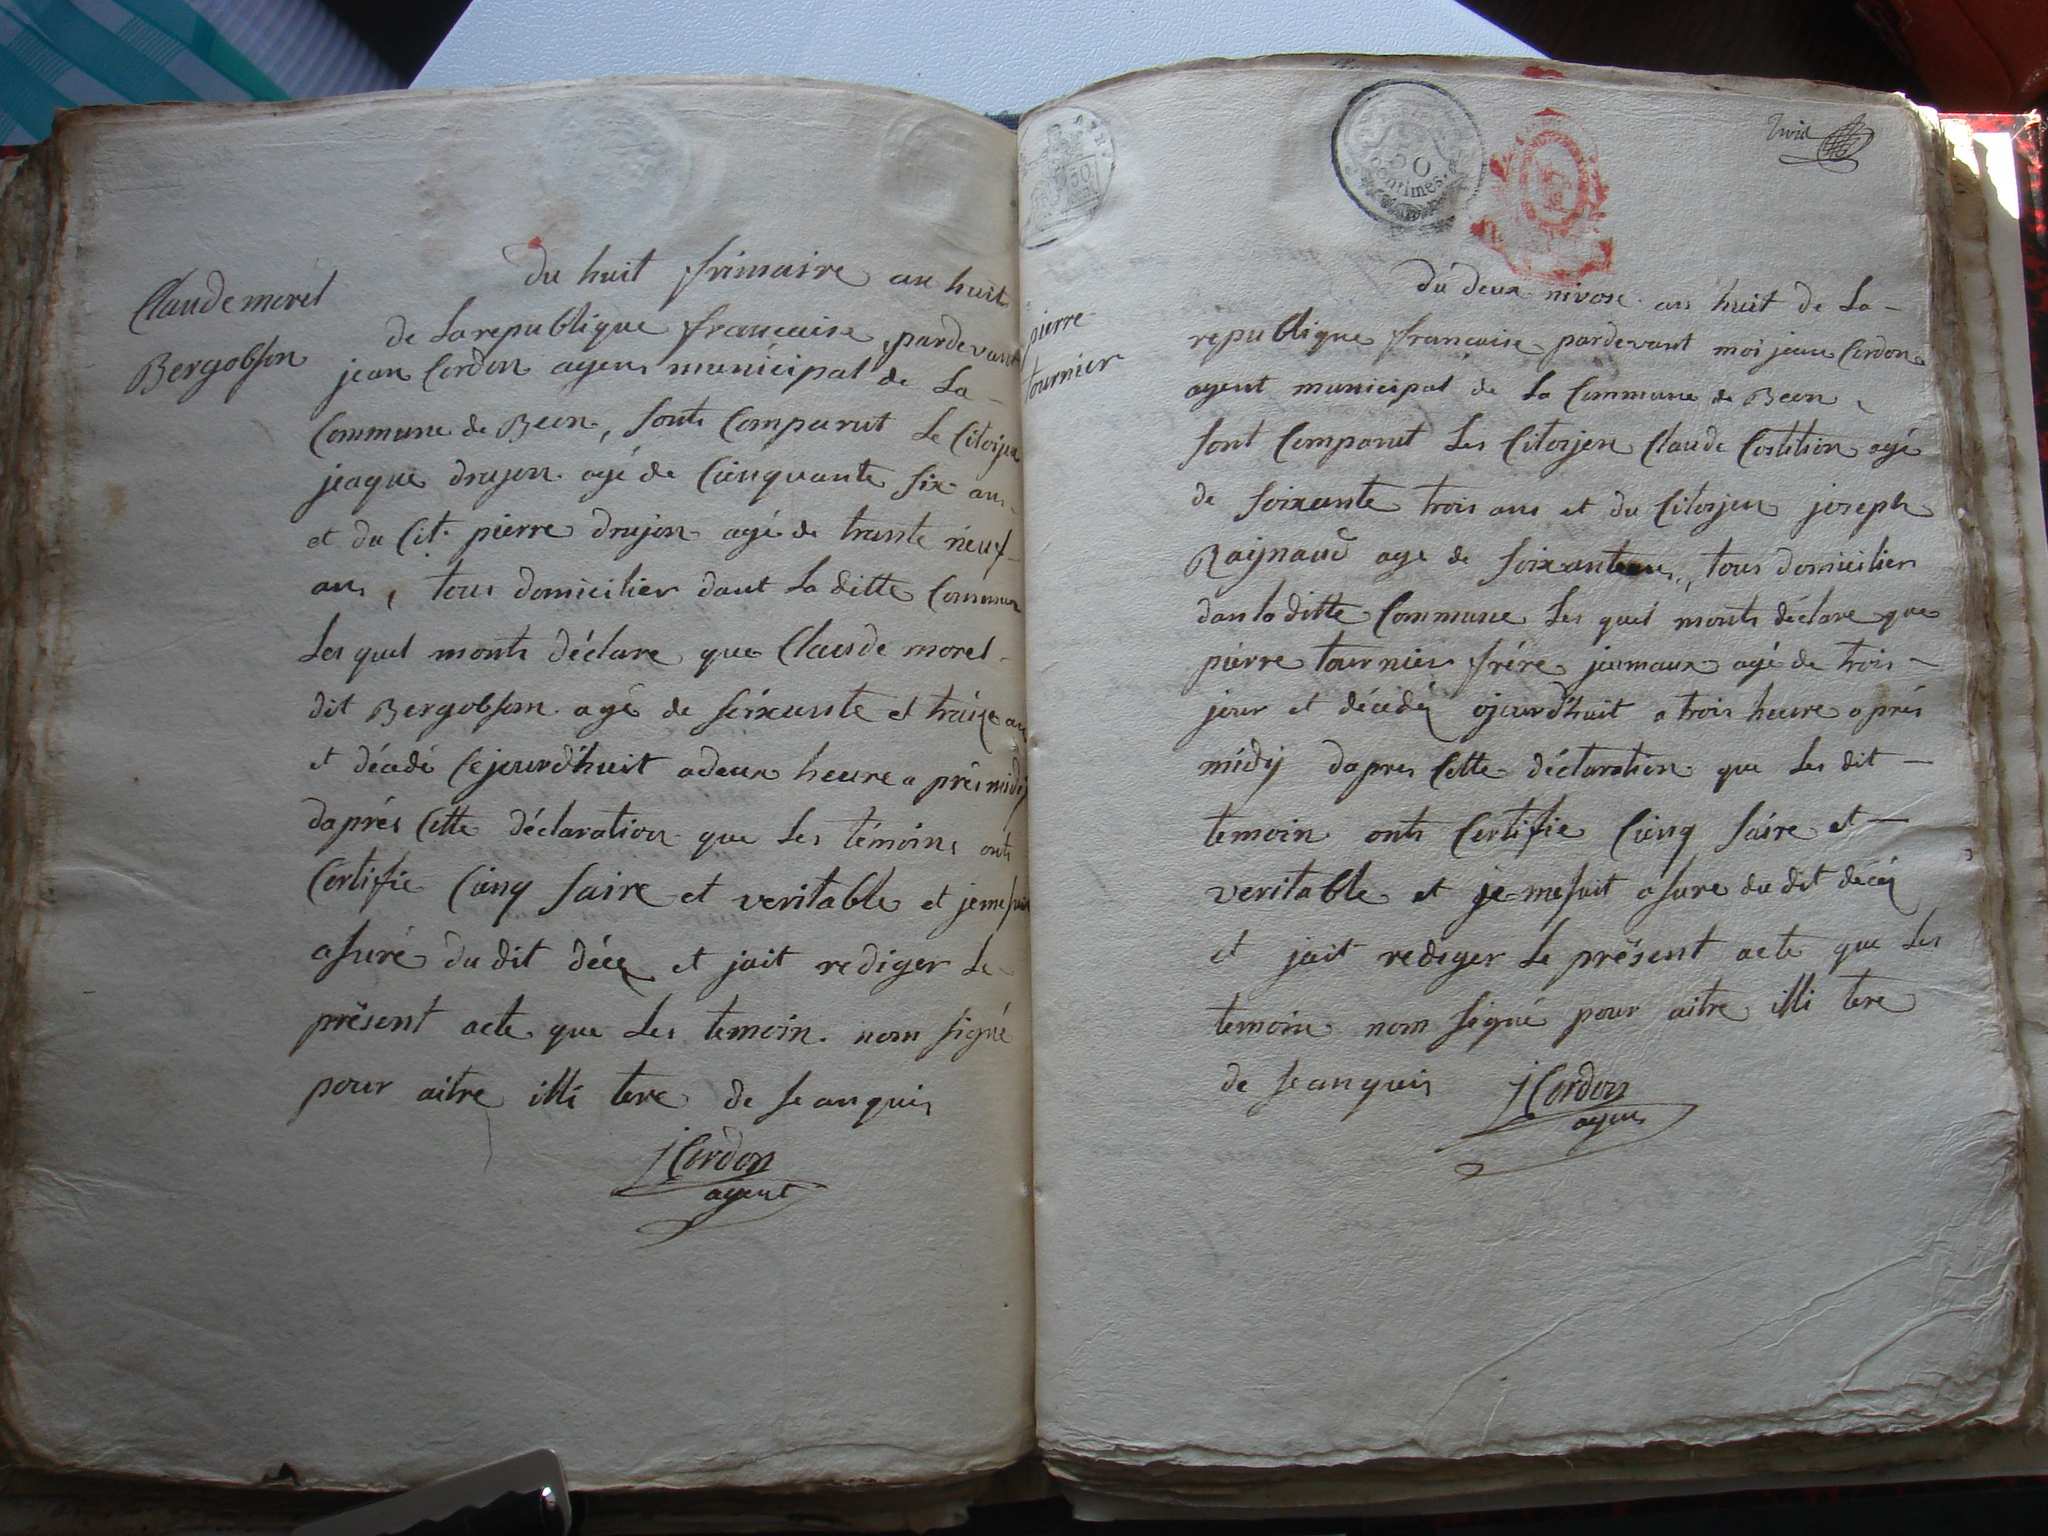 Claude morel
Bergobson
du huit frimaire an huit
de la republique francaise, pardevant
jean Cordon agent municipal de La
Commune de Beon, sonts Comparut Le Citoijen
jeaque drujon agé de Cienquante six ans
et du Cit. pierre drujon agé de trante neuf
ans, tous domicilier dant La ditte Commune
Les quel monts déclare que Claude morel
dit Bergobson agé de soixante et traize ans
et décédé Cejourd'huit a deux heure a prés midij
daprés Cette déclaration que Les témoins onts
Certifie Cienq saire et veritable et je me suit
asuré du dit décé et jait rediger Le
présent acte que Les temoin nom signé
pour aitre illi tere de Se anquis
jCordon
agent
50
Centimes
pierre
tournier
du deux nivose an huit de La
republique francaise pardevant moi jean Cordon
agent municipal de La Commune de Beon
sont Comparut Les Citoijen Claude Costition agé
de soixante trois ans et du Citoijen joseph
Raijnaud age de soixante ans, tous domicilier
dan la ditte Commune Les quel monts déclare que
pierre tournier frére jeumaux agé de trois
jour et décédéz ojourd'huit a trois heure aprés
midij dapres Cette déclaration que Les dit
temoin onts Certifie Cienq saire et
veritable et je me suit asure du dit décéz
et jait rediger Le présent acte que Les
temoin nom signé pour aitre illi tere
de se anquis
jCordon
agent